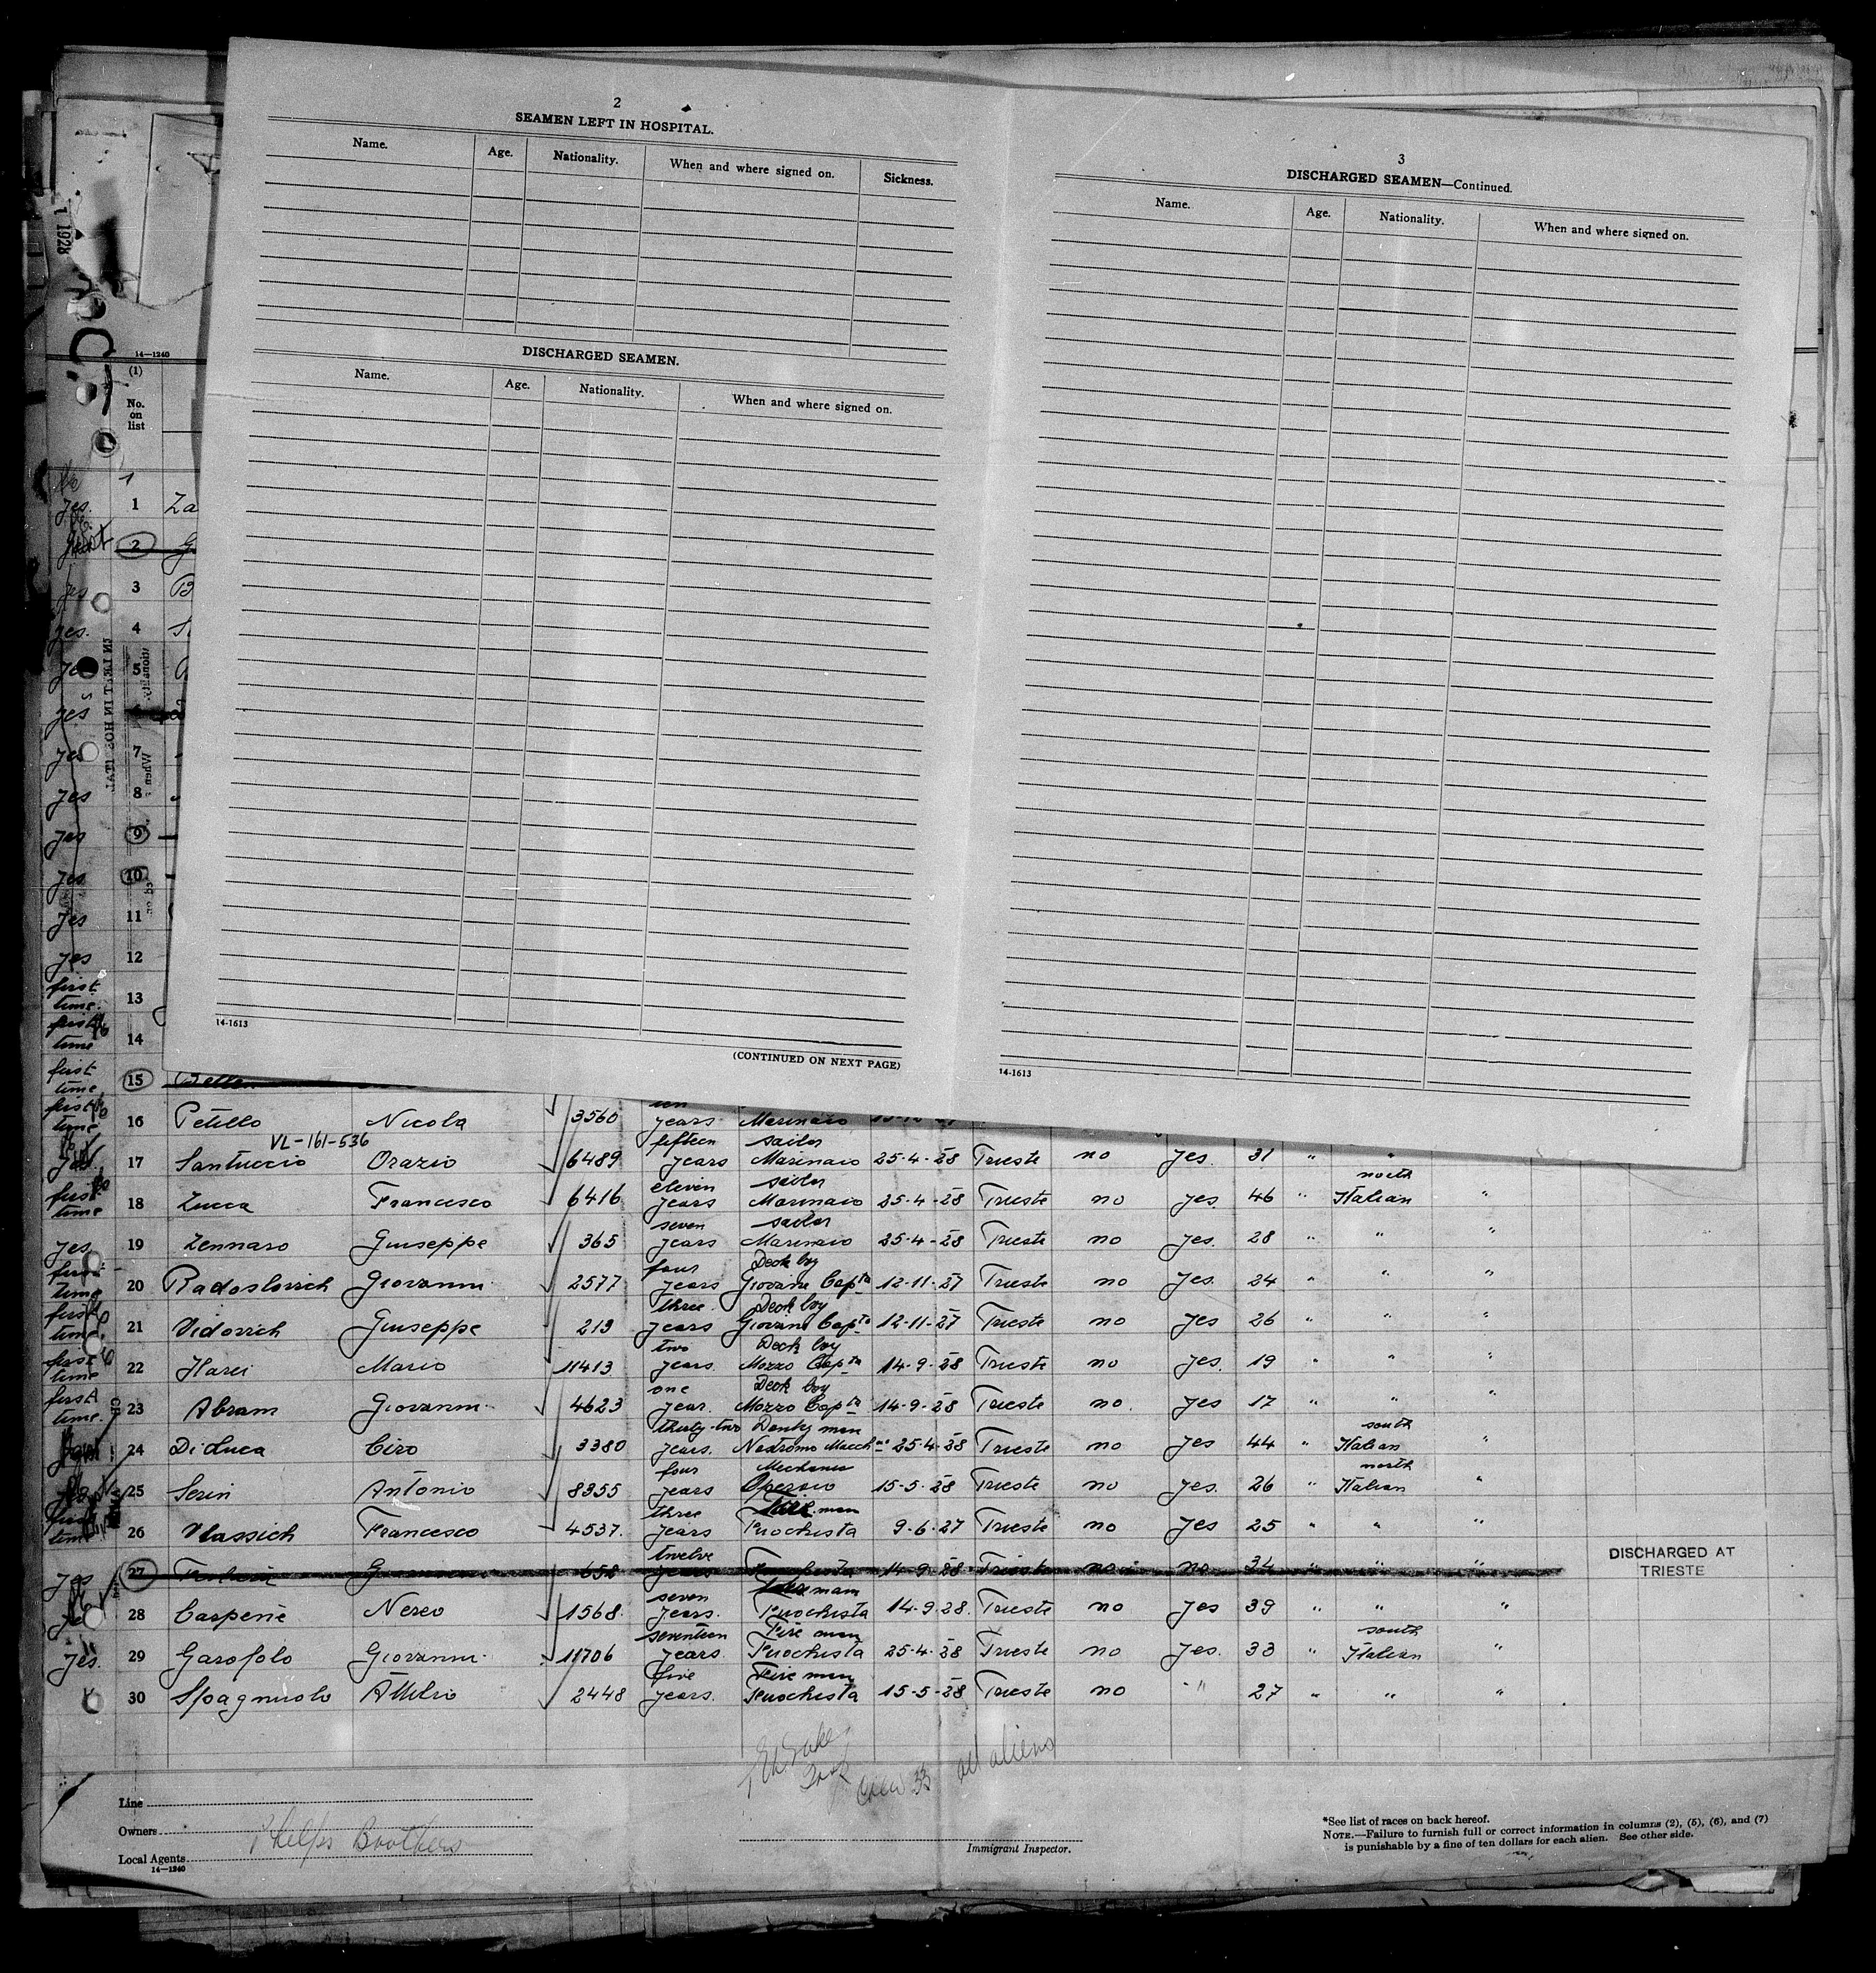 2
SEAMEN LEFT IN HOSPITAL.
Name. Age. Nationality. When and where signed on. Sickness.
DISCHARGED SEAMEN.
Name. Age. Nationality. When and where signed on.
14-1613
(CONTINUED ON NEXT PAGE)
3
DISCHARGED SEAMEN—Continued.
Name. Age. Nationality. When and where signed on.
14-1613
1 1928
14—1240
(1)
No. on list
yes. 1 Za
2 G
yes 3 B
yes. 4
5
yes
yes 7
yes 8
yes 9
yes 10
yes 11
yes 12
first time. 13
first time 14
first time 15
first time 16 Petillo Nicola 3560 ten years Marinaio
VL-161-536
yes. 17 Santuccio Orazio 6489 fifteen years sailor Marinaio 25-4-28 Trieste no yes. 31 " "
first time 18 Zucca Francesco 6416 eleven years sailor Marinaio 25-4-28 Trieste no yes. 46 " north Italian "
yes 19 Zennaro Giuseppe 365 seven years sailor Marinaio 25-4-28 Trieste no yes. 28 " " "
first time 20 Radoslovich Giovanni 2577 four years Deck boy Giovane Copta 12-11-27 Trieste no yes. 24 " " "
first time. 21 Vidovich Giuseppe 213 three years Deck boy Giovane Copta 12-11-27 Trieste no yes 26 " " "
first time 22 Harei Mario 11413 two years. Deck boy Mozzo Copta 14-9-28 Trieste no yes. 19 " " "
first time. 23 Abram Giovanni 4623 one year. Deck boy Mozzo Copta 14-9-28 Trieste no. yes 17 " " "
24 Di Luca Ciro 3380 thirty-two years. Donky man Nostromo Macch 25-4-28 Trieste no yes 44 " south Italian "
25 Serin Antonio 8355 four years Mechanic Operaio 15-5-28 Trieste no yes. 26 " north Italian "
first time 26 Vlassich Francesco 4537. three years Fire man Fuochista 9-6-27 Trieste no yes 25 " " "
yes 27 658 twelve years 14-9-28 Trieste no no 34 " " " DISCHARGED AT TRIESTE
28 Carpenè Nereo 1568. seven years. Fire man Fuochista 14-9-28. Trieste no yes 39 " " "
yes. 29 Garofolo Giovanni 11706 seventeen years. Fire man Fuochista 25-4-28 Trieste no yes. 33 " south Italian "
30 Spagnuolo Attilio 2448 five years. Fire man Fuochista 15-5-28 Trieste no " 27 " " "
Crew 33 all aliens
Line
Owners
Phelps Brothers
Local Agents
14—1240
Immigrant Inspector.
*See list of races on back hereof.
NOTE.—Failure to furnish full or correct information in columns (2), (5), (6), and (7)
is punishable by a fine of ten dollars for each alien. See other side.